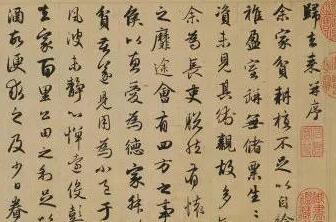 歸去來并序
余家貧耕植不足以自給
稚盈室缾無儲粟生
資未見其術親故多
余為長吏脫然有懷
之靡途會有四方之事
侯以惠愛為德家叔
貧苦遂見用為小邑于
風波未靜心憚遠役彭
去家百里公田之利足
酒故便求之及少日眷